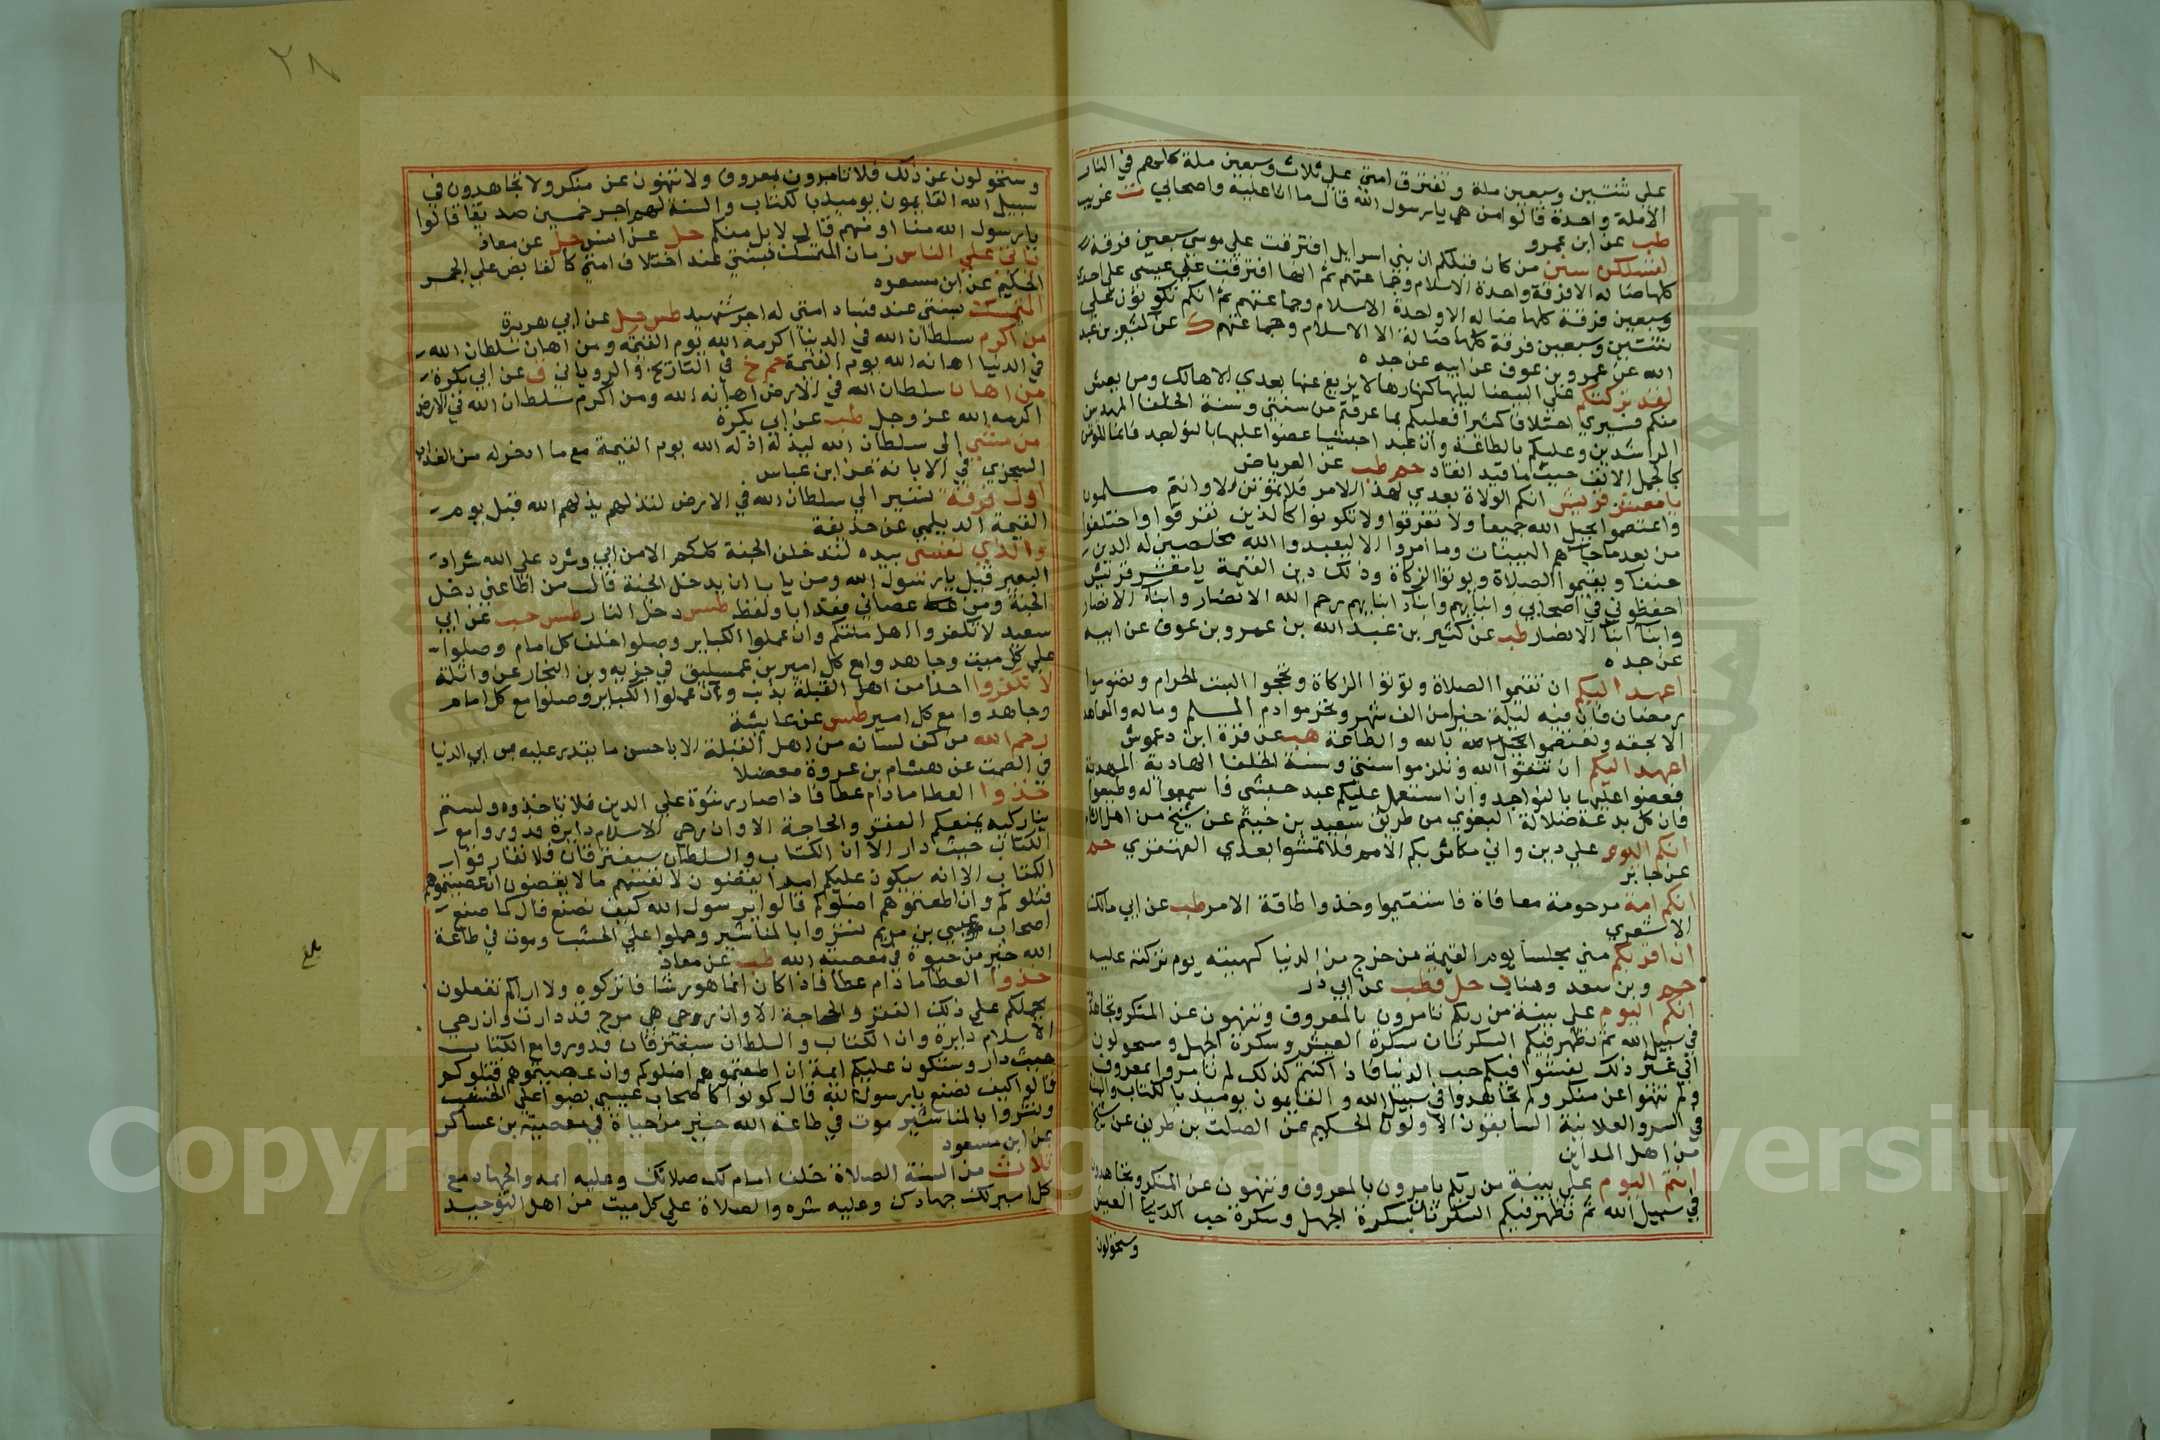 على ثنتين وسبعين ملة وتفترق امتي على ثلاث وسبعين ملة كلهم في النار
الا ملة واحدة قالوا من هي يا رسول الله قال ما انا عليه واصحابي ت غريب
طب عن ابن عمرو
لتسلكن سنن من كان قبلكم ان بني اسرايل افترقت على موسى سبعين فرقة
كلها ضاله الا فرقة واحدة الاسلام وجماعتهم ثم انها افترقت على عيسى على احدى
وسبعين فرقة كلها ضاله الا واحدة الاسلام وجماعتهم ثم انكم تكونون على
ثنتين وسبعين فرقة كلها ضالة الا الاسلام وجماعتهم ك عن كثير بن عبد
الله عن عمرو بن عوف عن ابيه عن جده
لقد تركتكم على البيضا ليلها كنهارها لا يزيغ عنها بعدي الا هالك ومن يعش
منكم فسيرى اختلافا كثيرا فعليكم بما عرفتم من سنتي وسنة الخلفا المهديين
الراشدين وعليكم بالطاعة وان عبد احبشيا عضوا عليها بالنواجد فانما المؤمن
كالجمل الانف حيث ما قيد انقاد حم طب عن العرباض
يا معشر قريش انكم الولاة بعدي لهذا الامر فلا تموتن الا وانتم مسلمون
واعتصموا بحبل الله جميعا ولا تفرقوا ولا تكونوا كالذين تفرقوا واختلفوا
من بعد ما جاهم البينات وما امروا الا ليعبدوا الله مخلصين له الدين
حنفا ويقيموا الصلاة ويوتوا الزكاة وذلك دين القيمة يا معشر قريش
احفظوني في اصحابي وابنايهم وابناء ابنايهم رحم الله الانصار وابنا الانصار
وابنا ابنا الانصار طب عن كثير بن عبد الله بن عمرو بن عوف عن ابيه
عن جده
اعهد اليكم ان تقيموا الصلاة وتوتوا الزكاة وتحجوا البيت الحرام وتصوموا
رمضان فان فيه ليلة خير من الف شهر وتحرموا دم المسلم وماله والمعاهد
الا بحقه وتعتصموا بحبل الله بالله والطاعة هب عن قرة ابن دعموش
اعهد اليكم ان تتقوا الله وتلزموا سنتي وسنة الخلفا الهادية المهدية
فعضوا عليها بالنواجد وان استعمل عليكم عبد حبشي فاسمعوا له وطيعوا
فان كل بدعة ضلالة البغوي من طريق سعيد بن خيثم عن شيخ من اهل الشام
انكم اليوم على دين واني مكاثر بكم الامم فلا تمشوا بعدي القهقري حم
عن جابر
انكم امة مرحومة معافاة فاستقيموا وخذوا طاقة الامر طب عن ابي مالك
الاشعري
ان اقربكم مني مجلسا يوم القيمة من خرج من الدنيا كهيئته يوم تركته عليه
حم وبن سعد وهناد حل وطب عن ابي ذر
انكم اليوم على بينة من ربكم تامرون بالمعروف وتنهون عن المنكر وتجاهدون
في سبيل الله ثم تظهر فيكم السكرتان سكرة العيش وسكرة الجهل وسحولون
الي غير ذلك يفشوا فيكم حب الدنيا فاذا كنتم كذلك لم تامروا بمعروف
ولم تنهوا عن منكر ولم تجاهدوا في سبيل الله والقايمون يوميذ بالكتاب والسنة
في السر والعلانية السابقون الاولون الحكيم عن الصلت بن طريف عن شيخ
من اهل المداين
انتم اليوم على بينة من ربكم تامرون بالمعروف وتنهون عن المنكر وتجاهدون
في سبيل الله ثم تظهر فيكم السكرتان سكرة الجهل وسكرة حب الدنيا العيش
وستحولون
٢٨
وستحولون عن ذلك فلا تامرون بمعروف ولا تنهون عن منكر ولا تجاهدون في
سبيل الله القايمون يوميذ بالكتاب والسنة لهم اجر خمسين صديقا قالوا
يا رسول الله منا او منهم قال لا بل منكم حل عن انس حل عن معاذ
ياتي على الناس زمان المتمسك بسنتي عند اختلاف امتي كالقابض على الجمر
الحكيم عن ابن مسعود
المتمسك بسنتي عند فساد امتي له اجر شهيد طس حل عن ابي هريرة
من اكرم سلطان الله في الدنيا اكرمه الله يوم القيمة ومن اهان سلطان الله
في الدنيا اهانه الله يوم القيمة حم خ في التاريخ والروياني ق عن ابي بكرة
من اهان سلطان الله في الارض اهانه الله ومن اكرم سلطان الله في الارض
اكرمه الله عز وجل طب عن ابي بكرة
من مشى الى سلطان الله ليذله اذله الله يوم القيمة مع ما ادخر له من العذاب
السجزي في الابانة عن ابن عباس
اول فرقة تسير الي سلطان الله في الارض لتذلهم يذلهم الله قبل يوم
القيمة الديلمي عن حذيفة
والذي نفسي بيده لتدخلن الجنة كلكم الا من ابي وشرد على الله شراد
البعير قيل يا رسول الله ومن يابا ان يدخل الجنة قال من اطاعني دخل
الجنة ومن عصاني فقد ابا ولفظ طس دخل النار طس حب عن ابي
سعيد لا تكفروا اهل ملتكم وان عملوا الكباير وصلوا خلف كل امام وصلوا
على كل ميت وجاهدوا مع كل امير بن عمسليق في جزيه وبن النجار عن واثلة
لا تكفروا احدا من اهل القبلة بذنب وان عملوا الكباير وصلوا مع كل امام
وجاهدوا مع كل امير طس عن عايشة
رحم الله من كف لسانه من اهل القبلة الا باحسن ما يقدر عليه بن ابي الدنيا
في الصمت عن هشام بن عروة معضلا
خذوا العطا ما دام عطا فاذا صار رشوة على الدين فلا تاخذوه ولستم
بتاركيه يمنعكم الفقر والحاجة الا وان رحى الاسلام دايرة فدوروا مع
الكتاب حيث دار الا ان الكتاب والسلطان سيفترقان فلا تفارقوا
الكتاب الا انه سيكون عليكم امرا يقضون لانفسهم ما لا يقضون ان عصيتموهم
قتلوكم وان اطعتموهم اضلوكم قالوا يرسول الله كيف نصنع قال كما صنع
اصحاب عيسى بن مريم نشروا بالمناشير وحملوا على الخشب وموت في طاعة
الله خير من حيوة في معصية الله طب عن معاذ
خذوا العطا ما دام عطا فاذا كان انما هو رشا فاتركوه ولا اراكم تفعلون
يحملكم على ذلك الفقر والحاجة الا وان رحى بني مرح قد دارت وان رحى
الاسلام دايرة وان الكتاب والسلطان سيفترقان فدوروا مع الكتاب
حيث دار وستكون عليكم ايمة ان اطعتموهم اضلوكم وان عصيتموهم قتلوكم
قالوا كيف نصنع يا رسول الله قال كونوا كاصحاب عيسى نصبوا على الخشب
ونشروا بالمناشير موت في طاعة الله خير من حياة في معصيته بن عساكر
عن ابن مسعود
بلغ
ثلاث من السنة الصلاة خلف امام لك صلاتك وعليه اثمه والجهاد مع
كل امير لك جهادك وعليه شره والصلاة على كل ميت من اهل التوحيد
Copyright © King Saud University